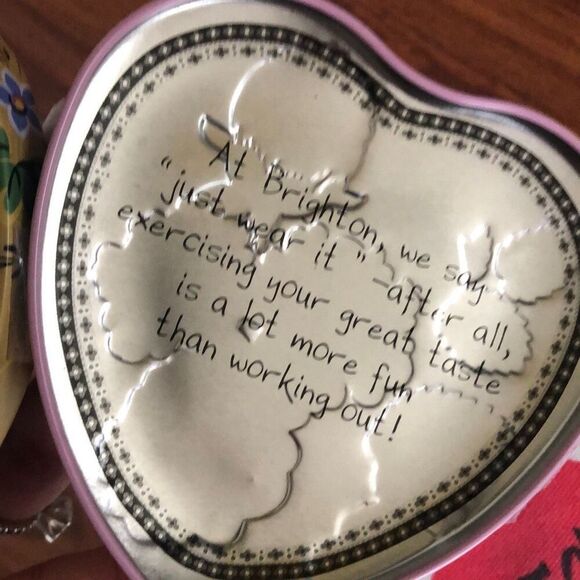 At Brighton, we say
"just wear it" - after all,
exercising your great taste
is a lot more fun
than working out!